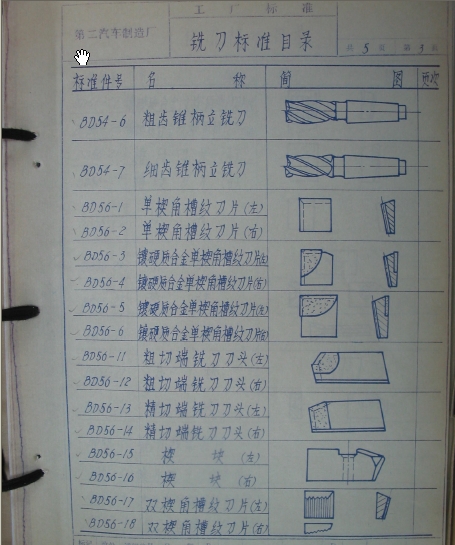 工厂标准
第二汽车制造厂
铣刀标准目录
共 5 页 第 3 页
标准件号 名 称 简 图 页次
BD54-6 粗齿锥柄立铣刀
BD54-7 细齿锥柄立铣刀
BD56-1 单楔角槽纹刀片(左)
BD56-2 单楔角槽纹刀片(右)
BD56-3 镶硬质合金单楔角槽纹刀片(左)
BD56-4 镶硬质合金单楔角槽纹刀片(右)
BD56-5 镶硬质合金单楔角槽纹刀片(左)
BD56-6 镶硬质合金单楔角槽纹刀片(右)
BD56-11 粗切端铣刀刀头(左)
BD56-12 粗切端铣刀刀头(右)
BD56-13 精切端铣刀刀头(左)
BD56-14 精切端铣刀刀头(右)
BD56-15 楔 块 (左)
BD56-16 楔 块 (右)
BD56-17 双楔角槽纹刀片(左)
BD56-18 双楔角槽纹刀片(右)